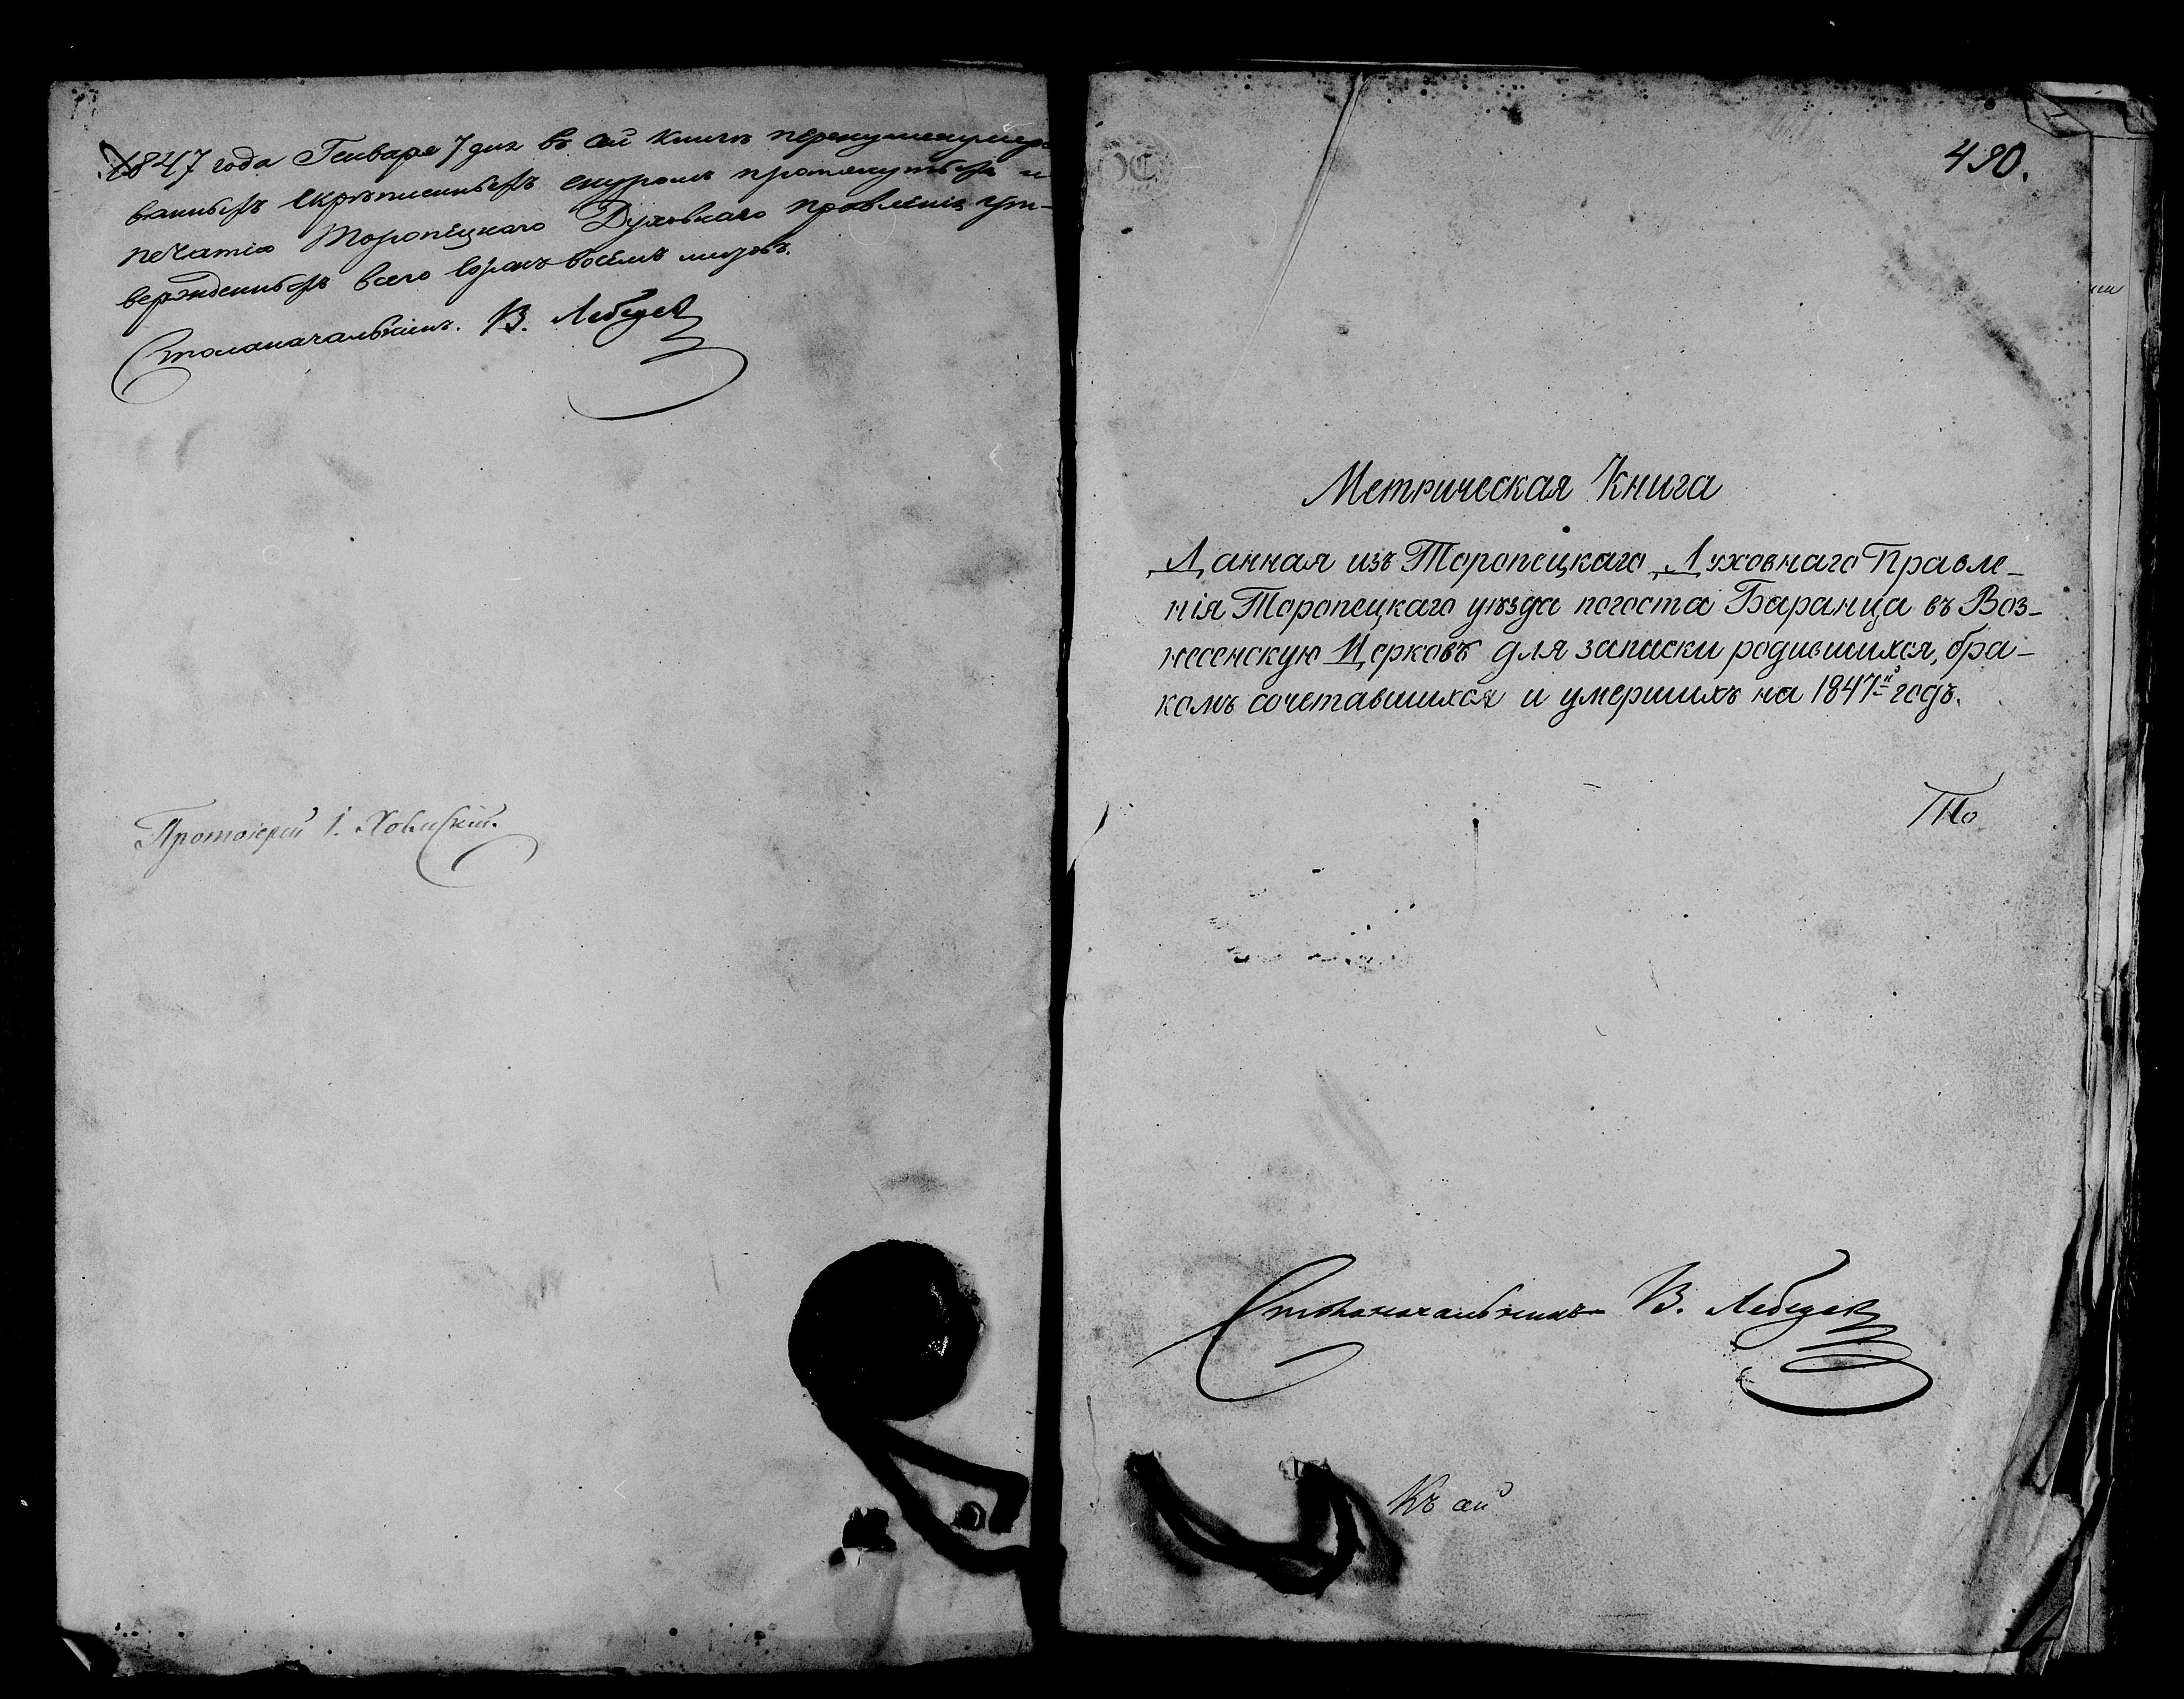 1847 года Генваря 7 дня въ сей книгѣ перенумеро
ванныхъ скрѣпленныхъ шнуромъ протянутыхъ и
печатію Торопецкаго Духовнаго правленія ут-
вержденныхъ всего сорокъ восемь листовъ.
Столоначальникъ. В. Лебедев
Протоіерей І.
490.
Метрическая Книга
Данная изъ Торопецкаго Духовнаго Правле-
нія Торопецкаго уѣзда погоста Баранца въ Воз-
несенскую Церковь для записки родившихся, бра-
комъ сочетавшихся и умершихъ на 1847й годъ.
То
Столоначальникъ В. Лебедев
Къ сей